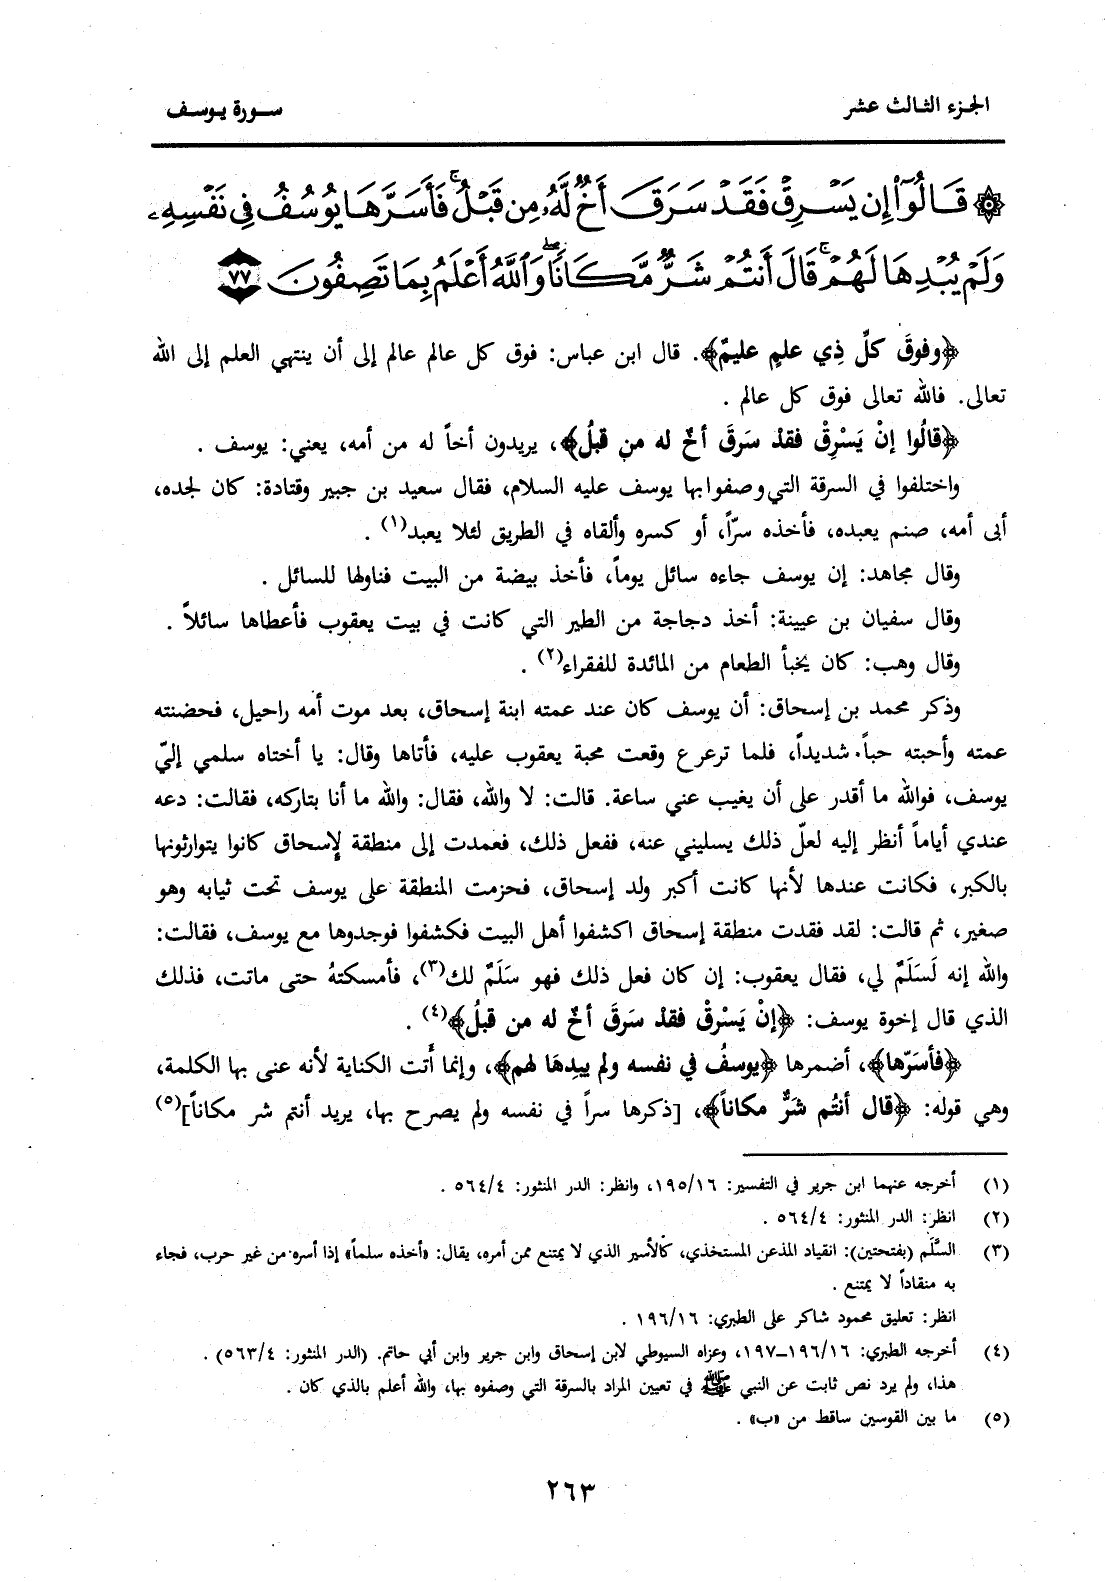 الجزء الثالث عشر
سورة يوسف
۞ قَالُوٓا۟ إِن يَسْرِقْ فَقَدْ سَرَقَ أَخٌ لَّهُۥ مِن قَبْلُ ۚ فَأَسَرَّهَا يُوسُفُ فِى نَفْسِهِۦ
وَلَمْ يُبْدِهَا لَهُمْ ۚ قَالَ أَنتُمْ شَرٌّ مَّكَانًا ۖ وَٱللَّهُ أَعْلَمُ بِمَا تَصِفُونَ ٧٧
﴿وفوقَ كلِّ ذِي علمٍ عليمٌ﴾. قال ابن عباس: فوق كل عالم عالم إلى أن ينتهي العلم إلى الله
تعالى. فالله تعالى فوق كل عالم .
﴿قالُوا إنْ يَسْرِقْ فقدْ سَرَقَ أخٌ له من قبلُ﴾، يريدون أخاً له من أمه، يعني: يوسف .
واختلفوا في السرقة التي وصفوا بها يوسف عليه السلام، فقال سعيد بن جبير وقتادة: كان لجده،
أبى أمه، صنم يعبده، فأخذه سرّاً، أو كسره وألقاه في الطريق لئلا يعبد(١) .
وقال مجاهد: إن يوسف جاءه سائل يوماً، فأخذ بيضة من البيت فناولها للسائل .
وقال سفيان بن عيينة: أخذ دجاجة من الطير التي كانت في بيت يعقوب فأعطاها سائلاً .
وقال وهب: كان يخبأ الطعام من المائدة للفقراء(٢) .
وذكر محمد بن إسحاق: أن يوسف كان عند عمته ابنة إسحاق، بعد موت أمه راحيل، فحضنته
عمته وأحبته حباً شديداً، فلما ترعرع وقعت محبة يعقوب عليه، فأتاها وقال: يا أختاه سلمي إليّ
يوسف، فوالله ما أقدر على أن يغيب عني ساعة. قالت: لا والله، فقال: والله ما أنا بتاركه، فقالت: دعه
عندي أياماً أنظر إليه لعلّ ذلك يسليني عنه، ففعل ذلك، فعمدت إلى منطقة لإسحاق كانوا يتوارثونها
بالكبر، فكانت عندها لأنها كانت أكبر ولد إسحاق، فحزمت المنطقة على يوسف تحت ثيابه وهو
صغير، ثم قالت: لقد فقدت منطقة إسحاق اكشفوا أهل البيت فكشفوا فوجدوها مع يوسف، فقالت:
والله إنه لَسَلَمٌ لي، فقال يعقوب: إن كان فعل ذلك فهو سَلَمٌ لك(٣)، فأمسكتهُ حتى ماتت، فذلك
الذي قال إخوة يوسف: ﴿إنْ يَسْرِقْ فقدْ سَرَقَ أخٌ له من قبلُ﴾(٤) .
﴿فأسَرّها﴾، أضمرها ﴿يوسفُ في نفسه ولم يبدِهَا لهم﴾، وإنما أَتت الكناية لأنه عنى بها الكلمة،
وهي قوله: ﴿قال أنتُم شَرٌّ مكاناً﴾، [ذكرها سراً في نفسه ولم يصرح بها، يريد أنتم شر مكاناً](٥)
(١) أخرجه عنهما ابن جرير في التفسير: ١٩٥/١٦، وانظر: الدر المنثور: ٥٦٤/٤ .
(٢) انظر: الدر المنثور: ٥٦٤/٤ .
(٣) السَّلَم (بفتحتين): انقياد المذعن المستخذي، كالأسير الذي لا يمتنع ممن أمره، يقال: «أخذه سلماً» إذا أسره من غير حرب، فجاء
به منقاداً لا يمتنع .
انظر: تعليق محمود شاكر على الطبري: ١٩٦/١٦ .
(٤) أخرجه الطبري: ١٩٦/١٦ــ١٩٧، وعزاه السيوطي لابن إسحاق وابن جرير وابن أبي حاتم. (الدر المنثور: ٥٦٣/٤) .
هذا، ولم يرد نص ثابت عن النبي ﷺ في تعيين المراد بالسرقة التي وصفوه بها، والله أعلم بالذي كان .
(٥) ما بين القوسين ساقط من «ب» .
٢٦٣